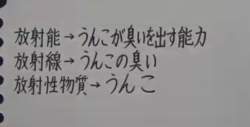 放射能→うんこが臭いを出す能力
放射線→うんこの臭い
放射性物質→うんこ